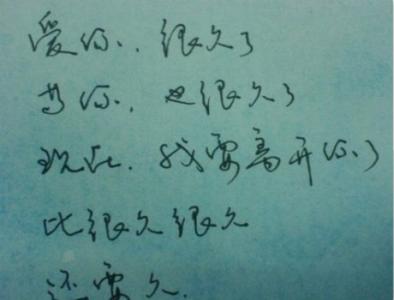 爱你、很久了
等你、也很久了
现在、我要离开你了
比很久很久
还要久.